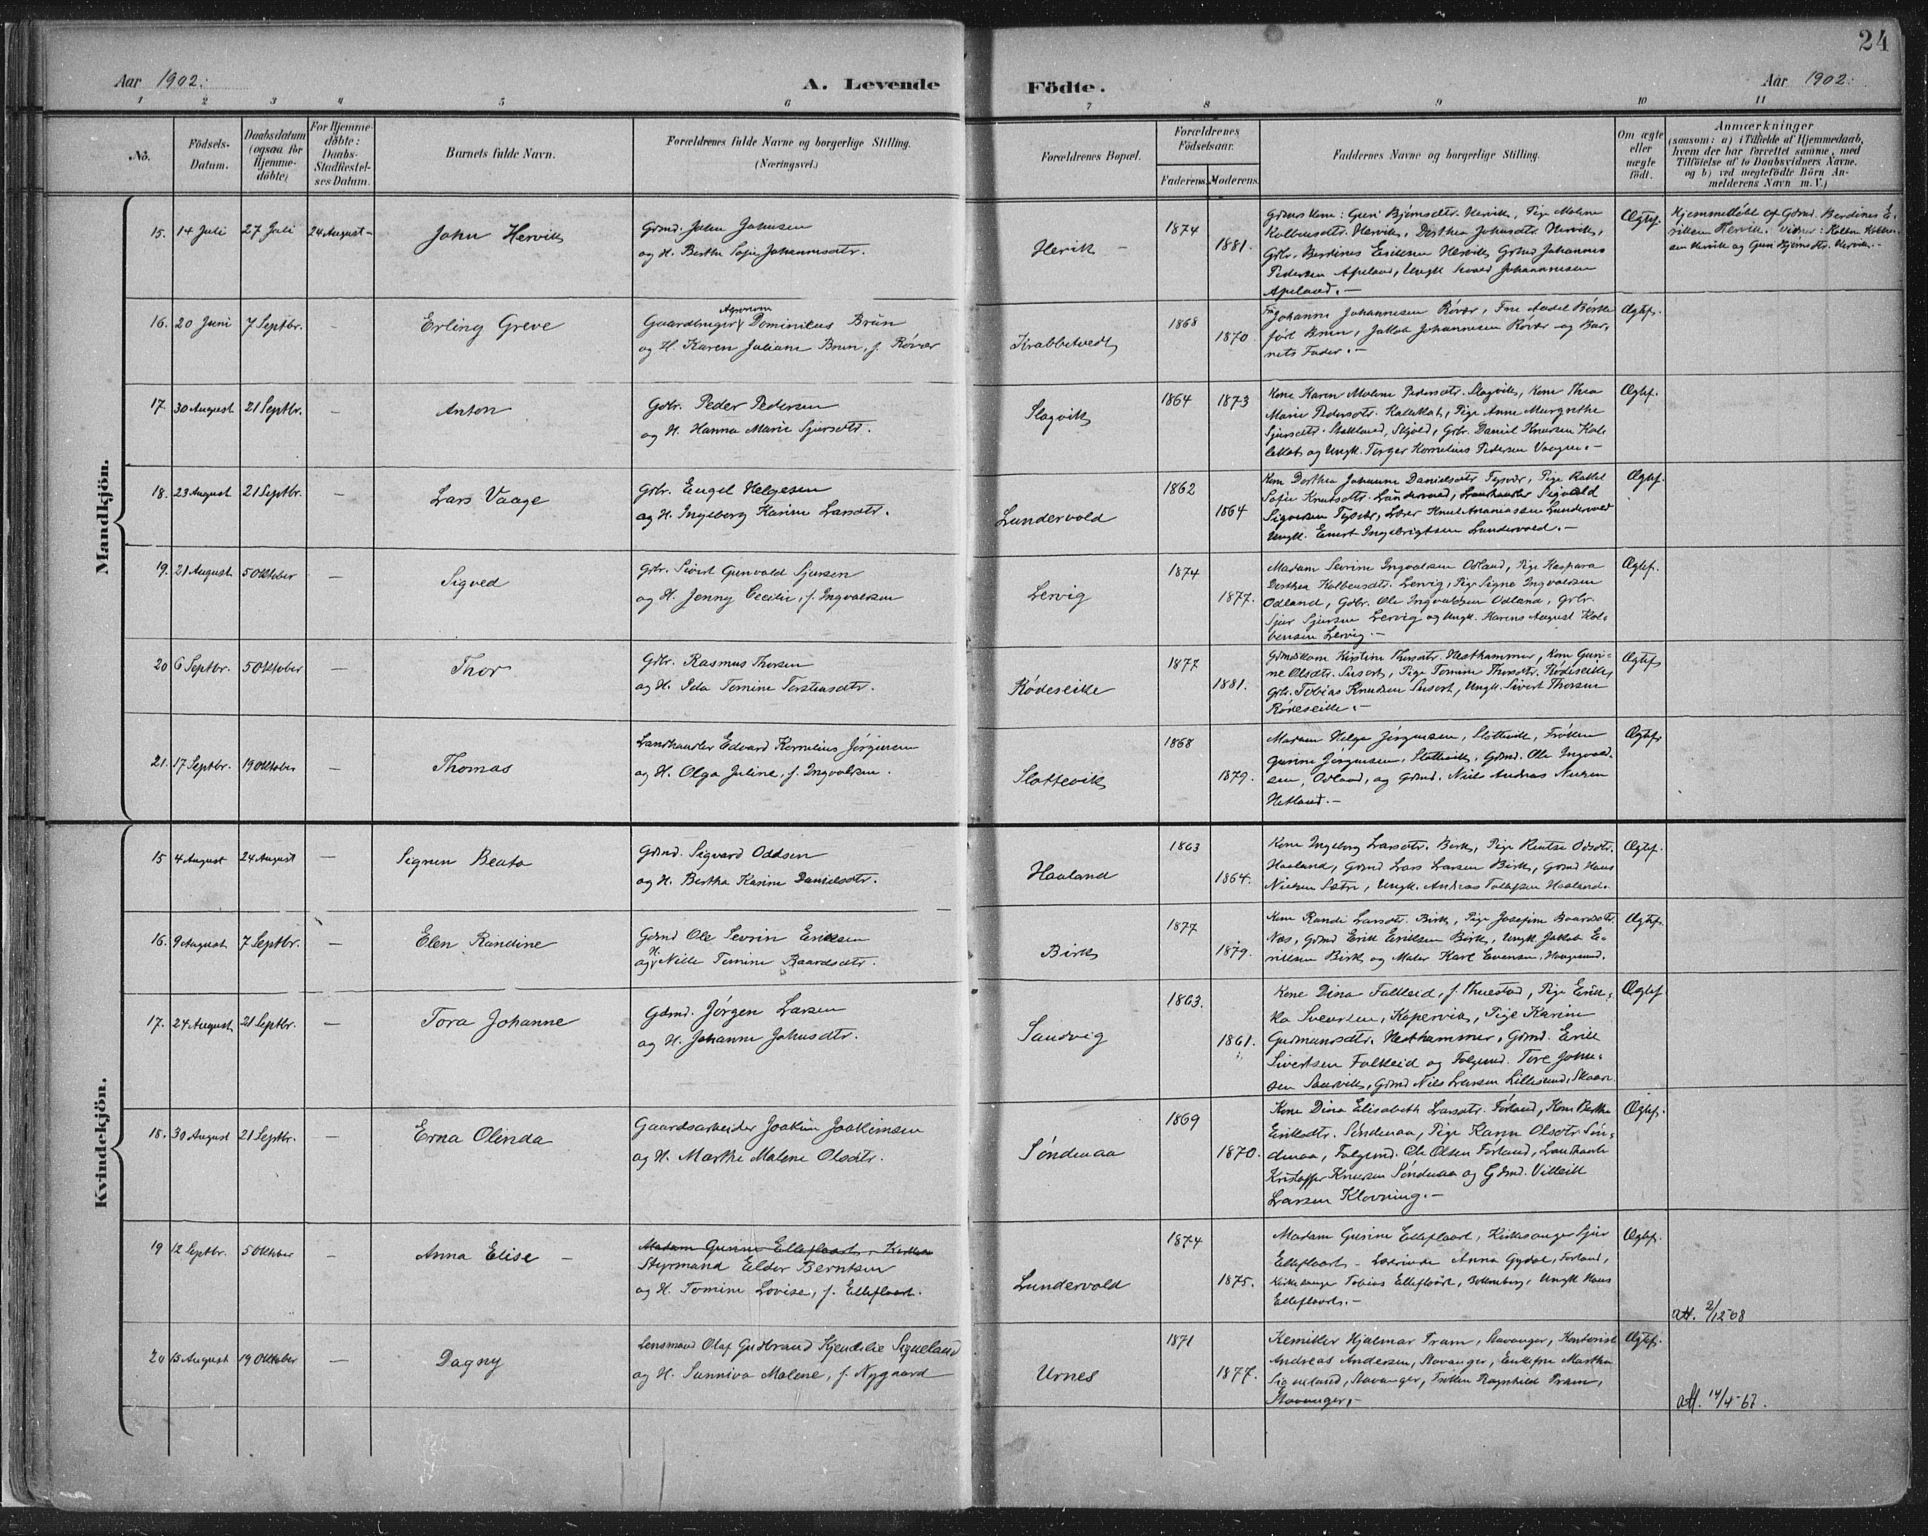 24
Aar 1902.
A. Levende Födte.
Aar 1902.
1 2 3 4 5 6 7 8 9 10 11
No.
Födsels-Datum.
Daabsdatum (ogsaa for Hjemmedöbte)
For Hjemmedöbte: Daabs-Stadfæstelses Datum.
Barnets fulde Navn.
Forældrenes fulde Navne og borgerlige Stilling. (Næringsvei.)
Forældrenes Bopæl.
Forældrenes Födselsaar.
Faderens. Moderens.
Faddernes Navne og borgerlige Stilling.
Om ægte eller uægte födt.
Anmærkninger
(saasom: a) i Tilfælde af Hjemmedaab, hvem der har forrettet samme, med Tilföielse af to Daabsvidners Navne, og b) ved uægtefödte Börn Anmelderens Navn m. V.)
Mandkjön.
15. 14 Juli 27 Juli 24 August -
John Hervik
Gdmd. John Johnsen
og H. Berthe Sofie Johannesdtr.
Hervik -
1874
1881.
Gdmds Kone: Guri Bjørnsdtr. Hervik, Pige Malene
Kolbensdtr. Hervik, Dorthea Johnsdtr. Hervik,
Gbr. Berdines Eriksen Hervik, Gdmd Johannes
Pedersen Apeland, Ungk. Johannesen
Apeland. -
Ægtef.
Hjemmedöbt af Gdmd. Berdines E-
riksen Hervik. Vidner: Kolben Kolben-
sen Hervik og Guri Bjørnsdtr. Hervik. -
16. 20 Juni 7 Septbr. -
Erling Greve
Agronom
Gaardbruger Dominikus Brun
og H. Karen Juliane Brun, f. Røvær
Krabbetvedt
1868
1870.
Johanne Johannesen Røvær, Frue
Brun, Jakob Johannesen Røvær og Bar-
nets Fader. -
Ægtef.
17. 30 August 21 Septbr. -
Anton
Gbr. Peder Pedersen
og H. Hanna Marie Sjursdtr.
Slagvik
1864 1873
Kone Karen Malene Pedersdtr. Slagvik, Kone Thea
Marie Pedersdtr. Pige Anne Margrethe
Sjursdtr. Stakland, Skjold, Gbr. Daniel Knutsen
og Ungk. Torger Kornelius Pedersen Vaagen. -
Ægtef.
18. 23 August 21 Septbr. -
Lars Vaage
Gbr. Engel Helgesen
og H. Ingeborg Karine Larsdtr.
Lundervold
1862
1864
Kone Dorthea Johanne Danielsdtr Tysvær, Pige Rakel
Sofie Knutsdtr. Lundervold, Landhandler Sigvald
Sigvartsen Tysvær, Lærer Knut Ananiassen Lundervold
Ungk. Einert Ingebrigtsen Lundervold. -
Ægtef.
19. 21 August 5 Oktober -
Sigved
Gbr. Sivert Gunvald Sjursen
og H. Jenny Cecilie, f. Ingvaldsen
Lervig
1874
1877.
Madam Sevrine Ingvaldsen Odland, Pige Kaspara
Dorthea Kolbensdtr. Lervig, Pige Signe Ingvaldsen
Odland, Gbr. Ole Ingvaldsen Odland, Gbr.
Sjur Sjursen Lervig og Ungk. Karens August Kol-
bensen Lervig. -
Ægtef.
20 6 Septbr. 5 Oktober -
Thor
Gbr. Rasmus Thorsen
og H. Ida Tomine Torstensdtr.
Rødeseike
1877
1881.
Gdmdskone Kirstine Thorsdtr. Hesthammer, Kone Guri-
ne Olsdtr. Susort, Pige Tomine Thorsdtr. Rødeseike,
Gbr. Tobias Knudsen Susort, Ungk. Sivert Thorsen
Rødeseike. -
Ægtef
21. 17 Septbr. 19 Oktober -
Thomas
Landhandler Edvard Kornelius Jørgensen
og H. Olga Juline, f. Ingvaldsen.
Slottevik
1868
1879.
Madam Helga Jørgensen, Slottevik, Frøken
Gurine Jørgensen, Slottevik, Gdmd. Ole Ingvald-
sen, Odland, og Gdmd. Niels Andreas Nilsen
Hetland. -
Ægtef
Kvindekjön.
15 4 August 24 August -
Signen Beata
Gdmd. Sigvard Oddsen
og H. Bertha Karine Danielsdtr.
Haaland
1863
1864.
Kone Ingeborg Larsdtr. Birk, Pige Odsdtr.
Haaland, Gdmd Lars Larsen Birk, Gdmd Hans
Nielsen Sætre, Ungk. Andreas Tollefsen Haaland.
Ægtef.
16. 9 August 7 Septbr. -
Elen Randine
Gdmd Ole Sevrin Eriksen
og H. Nille Tomine Baardsdtr.
Birk
1877
1879.
Kone Randi Larsdtr. Birk, Pige Josefine Baardsdtr.
Nes, Gdmd Erik Eriksen Birk, Ungk. Jakob E-
riksen Birk og Maler Karl Evensen, Haugesund.
Ægtef.
17. 24 August 21 Septbr. -
Tora Johanne
Gdmd. Jørgen Larsen
og H. Johanne Johnsdtr.
Sandvig
1863.
1861.
Kone Dina Falkeid, f. Pige Erik-
ka Svensen, Kopervik, Pige Karine
Gudmundsdtr. Hesthammer, Gdmd. Erik
Sivertsen Falkeid og Folgmd. Tore John-
sen Sandvik, Gdmd Nils Larsen Lillesund, Skaare
Ægtef
18. 30 August 21 Septbr. -
Erna Olinda
Gaardsarbeider Joakim Joakimsen
og H. Marthe Malene Olsdtr.
Søndenaa
1869
1870.
Kone Dina Elisabeth Larsdtr. Førland, Kone Bertha
Eriksdtr. Søndenaa, Pige Karen Olsdtr. Søn-
denaa, Folgmd. Ole Olsen Førland, Landhandl.
Kristoffer Knutsen Søndenaa og Gdmd. Villeik
Larsen Klovning. -
Ægtef.
19 12 Septbr. 5 Oktober -
Anna Elise -
Madam Gurine Elleflaat, Kirke
Styrmand Elder Berntsen
og H. Tomine Lovise, f. Elleflaat.
Lundervold
1874
1875.
Madam Gurine Elleflaat, Kirkesanger Sjur
Elleflaat. Lærerinde Anna Gydal, Førland,
Kirkesanger Tobias Elleflaat, Ungk Hans
Elleflaat. -
Ægtef.
att. 2/12 08
20 13 August 19 Oktober -
Dagny
Lensmand Olaf Gudbrand Kjendlie Siqueland
og H. Sunniva Malene, f. Nygaard
Urnes
1871
1877.
Kemiker Hjalmar Pram, Stavanger, Kontorist
Andreas Andersen, Stavanger, Enkefru Martha
Siqueland, Stavanger, Frøken Ragnhild Pram,
Stavanger. -
Ægtef.
att. 14/4-67.